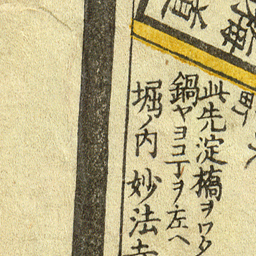 此先淀橋ヲワタ
鍋ヤヨコ丁ヲ左ヘ
堀ノ内妙法寺